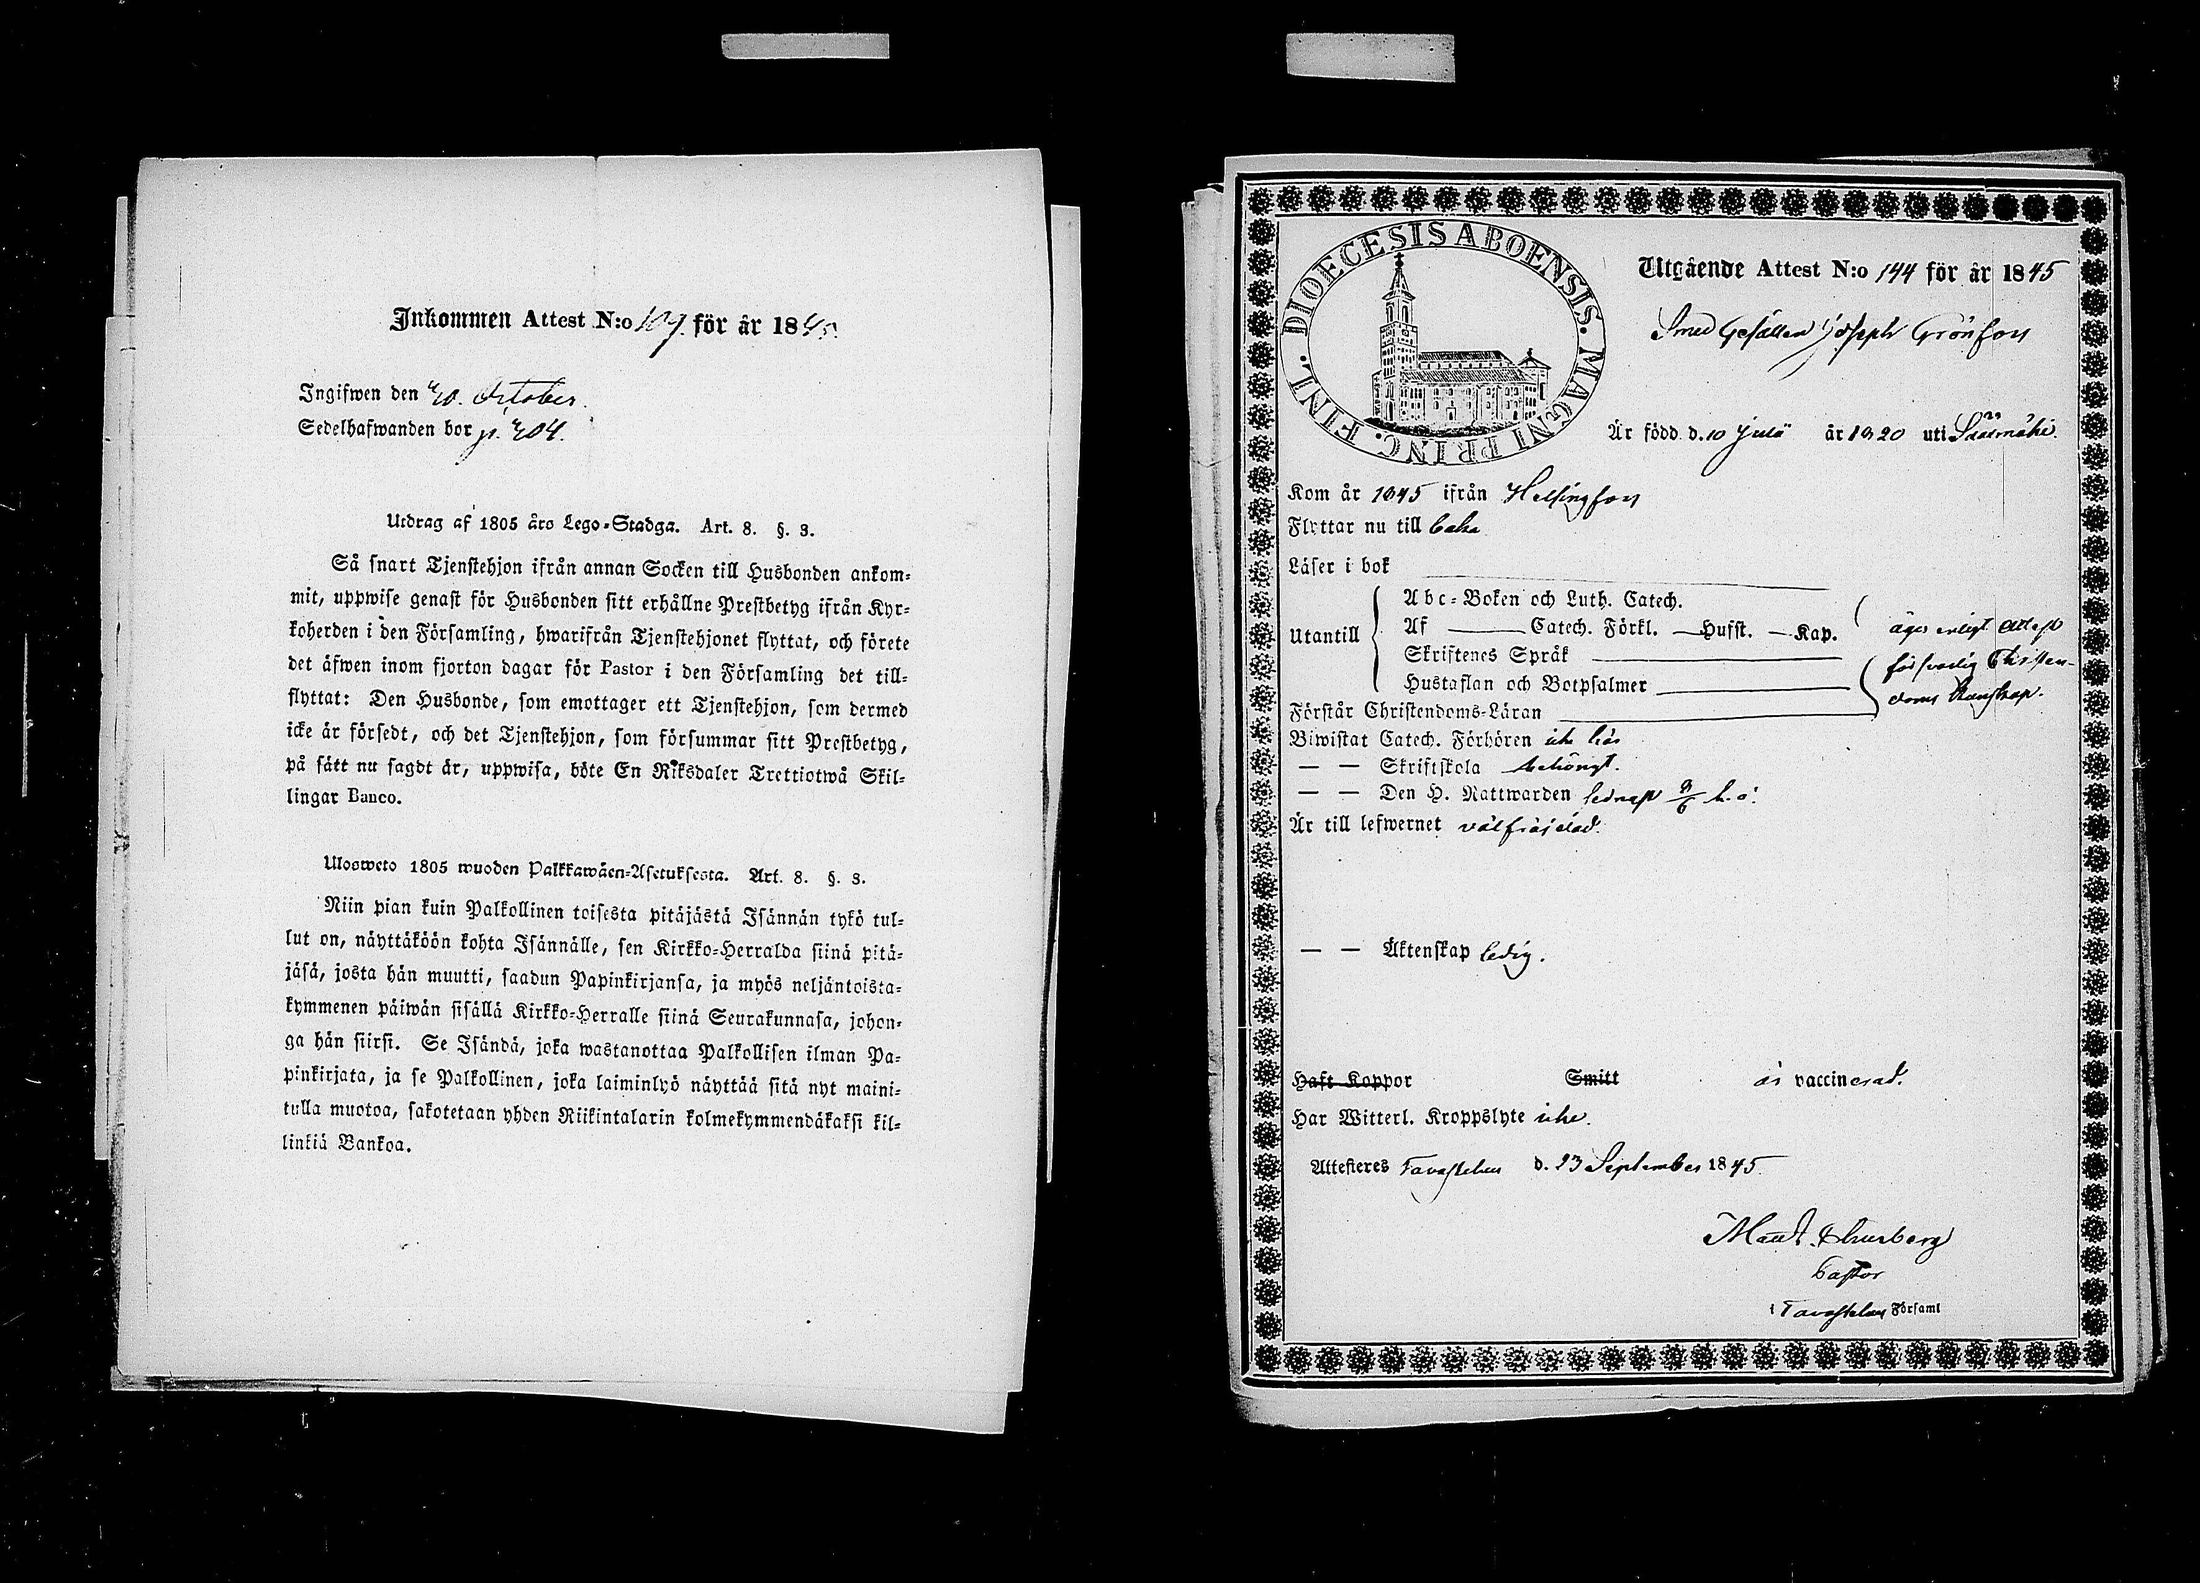 Inkommen Attest N:o 107. för år 1845.
Ingifwen den 20. October.
Sedelhafwanden bor p. 204.
Utdrag af 1805 års Lego-Stadga. Art. 8. §. 3.
Så snart Tjenstehjon ifrån annan Socken till Husbonden ankom-
mit, uppwise genast för Husbonden sitt erhållne Prestbetyg ifrån Kyr-
koherden i den Församling, hwarifrån Tjenstehjonet flyttat, och förete
det äfwen inom fjorton dagar för Pastor i den Församling det till-
flyttat: Den Husbonde, som emottager ett Tjenstehjon, som dermed
icke är försedt, och det Tjenstehjon, som försummar sitt Prestbetyg,
på sätt nu sagdt är, uppwisa, böte En Riksdaler Trettiotwå Skil-
lingar Banco.
Ulosweto 1805 wuoden Palkkawäen-Asetuksesta. Art. 8. §. 3.
Niin pian kuin Palkollinen toisesta pitäjästä Isännän tykö tul-
lut on, näyttäköön kohta Isännälle, sen Kirkko-Herralda siinä pitä-
jäsä, josta hän muutti, saadun Papinkirjansa, ja myös neljäntoista-
kymmenen päiwän sisällä Kirkko-Herralle siinä Seurakunnasa, johon-
ga hän siirsi. Se Isändä, joka wastanottaa Palkollisen ilman Pa-
pinkirjata, ja se Palkollinen, joka laiminlyö näyttää sitä nyt maini-
tulla muotoa, sakotetaan yhden Riikintalarin kolmekymmendäkaksi kil-
linkiä Bankoa.
DIOECESIS ABOENSIS. MAGNI PRINC. FINL.
Utgående Attest N:o 144 för år 1845
Smed Gesällen Joseph Grönfors
Är född d. 10 Julii år 1820 uti Sääsmäki.
Kom år 1845 ifrån Helsingfors
Flyttar nu till baka
Läser i bok
Utantill
Abc-Boken och Luth. Catech.
Af Catech. Förkl. Husst. Kap.
Skriftenes Språk
Hustaflan och Botpsalmer
äger enligt Attest
försvarlig Christen-
doms kunskap.
Förstår Christendoms-Läran
Biwistat Catech. Förhören icke här
— — Skriftskola behörigt.
— — Den H. Nattwarden sednast 8/6 h. å.
Är till lefwernet välfräjdad.
— — Äktenskap ledig.
Haft Koppor Smitt är vaccinerad.
Har Witterl. Kroppslyte icke.
Attesteres Tavastehus d. 23 September 1845
Pastor
i Tavastehus Församl